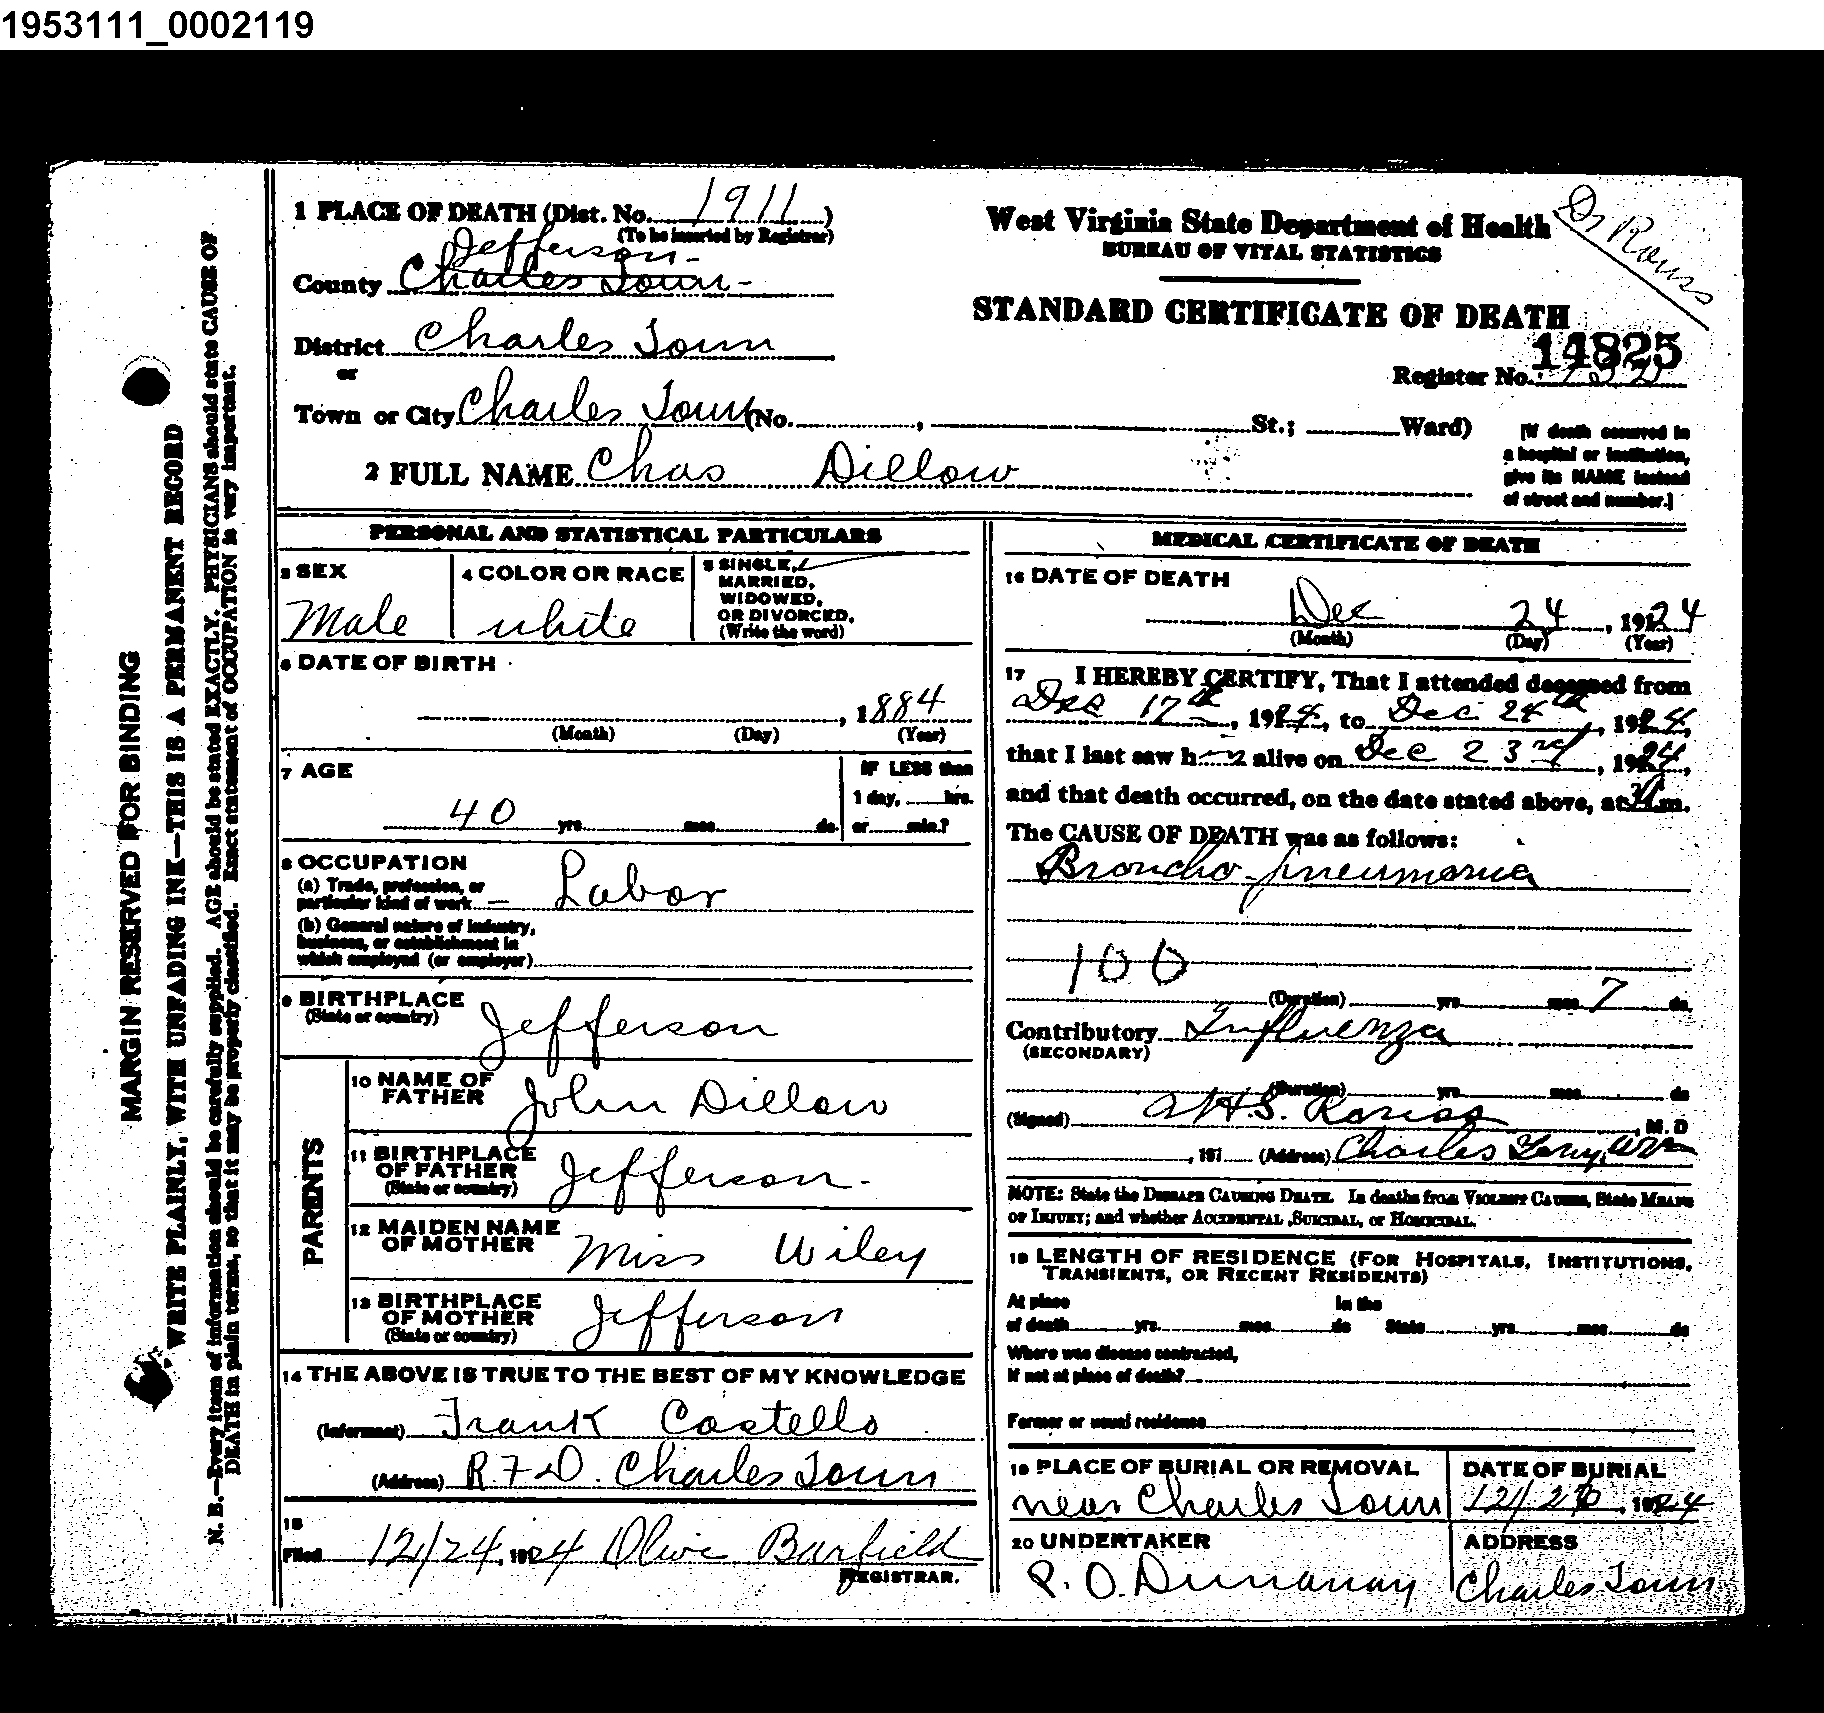 1953111_0002119
1 PLACE OF DEATH (Dist. No. 1911)
(To be inserted by Registrar)
Jefferson
County Charles Town
District Charles Town
or
Town or City Charles Town (No. , St.; Ward)
2 FULL NAME Chas Dillow
West Virginia State Department of Health
BUREAU OF VITAL STATISTICS
Dr Rouss
STANDARD CERTIFICATE OF DEATH
14825
Register No.
[If death occurred in
a hospital or institution,
give its NAME instead
of street and number.]
MARGIN RESERVED FOR BINDING
WRITE PLAINLY, WITH UNFADING INK—THIS IS A PERMANENT RECORD
N. B.—Every item of information should be carefully supplied. AGE should be stated EXACTLY. PHYSICIANS should state CAUSE OF
DEATH in plain terms, so that it may be properly classified. Exact statement of OCCUPATION is very important.
PERSONAL AND STATISTICAL PARTICULARS
3 SEX
Male
4 COLOR OR RACE
white
5 SINGLE,
MARRIED,
WIDOWED,
OR DIVORCED,
(Write the word)
6 DATE OF BIRTH
, 1884
(Month) (Day) (Year)
7 AGE
40 yrs. mos. ds.
IF LESS than
1 day, hrs.
or min.?
8 OCCUPATION
(a) Trade, profession, or
particular kind of work — Labor
(b) General nature of industry,
business, or establishment in
which employed (or employer)
9 BIRTHPLACE
(State or country) Jefferson
PARENTS
10 NAME OF
FATHER John Dillow
11 BIRTHPLACE
OF FATHER
(State or country) Jefferson
12 MAIDEN NAME
OF MOTHER Miss Wiley
13 BIRTHPLACE
OF MOTHER
(State or country) Jefferson
14 THE ABOVE IS TRUE TO THE BEST OF MY KNOWLEDGE
(Informant) Frank Costello
(Address) R.F.D. Charles Town
15
Filed 12/24, 1924 Olive Barfield
REGISTRAR.
MEDICAL CERTIFICATE OF DEATH
16 DATE OF DEATH
Dec 24, 1924
(Month) (Day) (Year)
17 I HEREBY CERTIFY, That I attended deceased from
Dec 17th, 1924, to Dec 24th, 1924,
that I last saw him alive on Dec 23rd, 1924,
and that death occurred, on the date stated above, at m.
The CAUSE OF DEATH was as follows:
Broncho-pneumonia
100
(Duration) yrs mos 7 ds.
Contributory Influenza
(SECONDARY)
(Duration) yrs mos ds
(Signed) Rouss, M.D
, 191 (Address) Charles Town, W Va
NOTE: State the DISEASE CAUSING DEATH. In deaths from VIOLENT CAUSES, State MEANS
OF INJURY; and whether ACCIDENTAL, SUICIDAL, or HOMICIDAL.
18 LENGTH OF RESIDENCE (FOR HOSPITALS, INSTITUTIONS,
TRANSIENTS, OR RECENT RESIDENTS)
At place In the
of death yrs. mos. ds State yrs. mos. ds
Where was disease contracted,
If not at place of death?
Former or usual residence
19 PLACE OF BURIAL OR REMOVAL
near Charles Town
DATE OF BURIAL
12/26, 1924
20 UNDERTAKER
P. O. Dunaway
ADDRESS
Charles Town